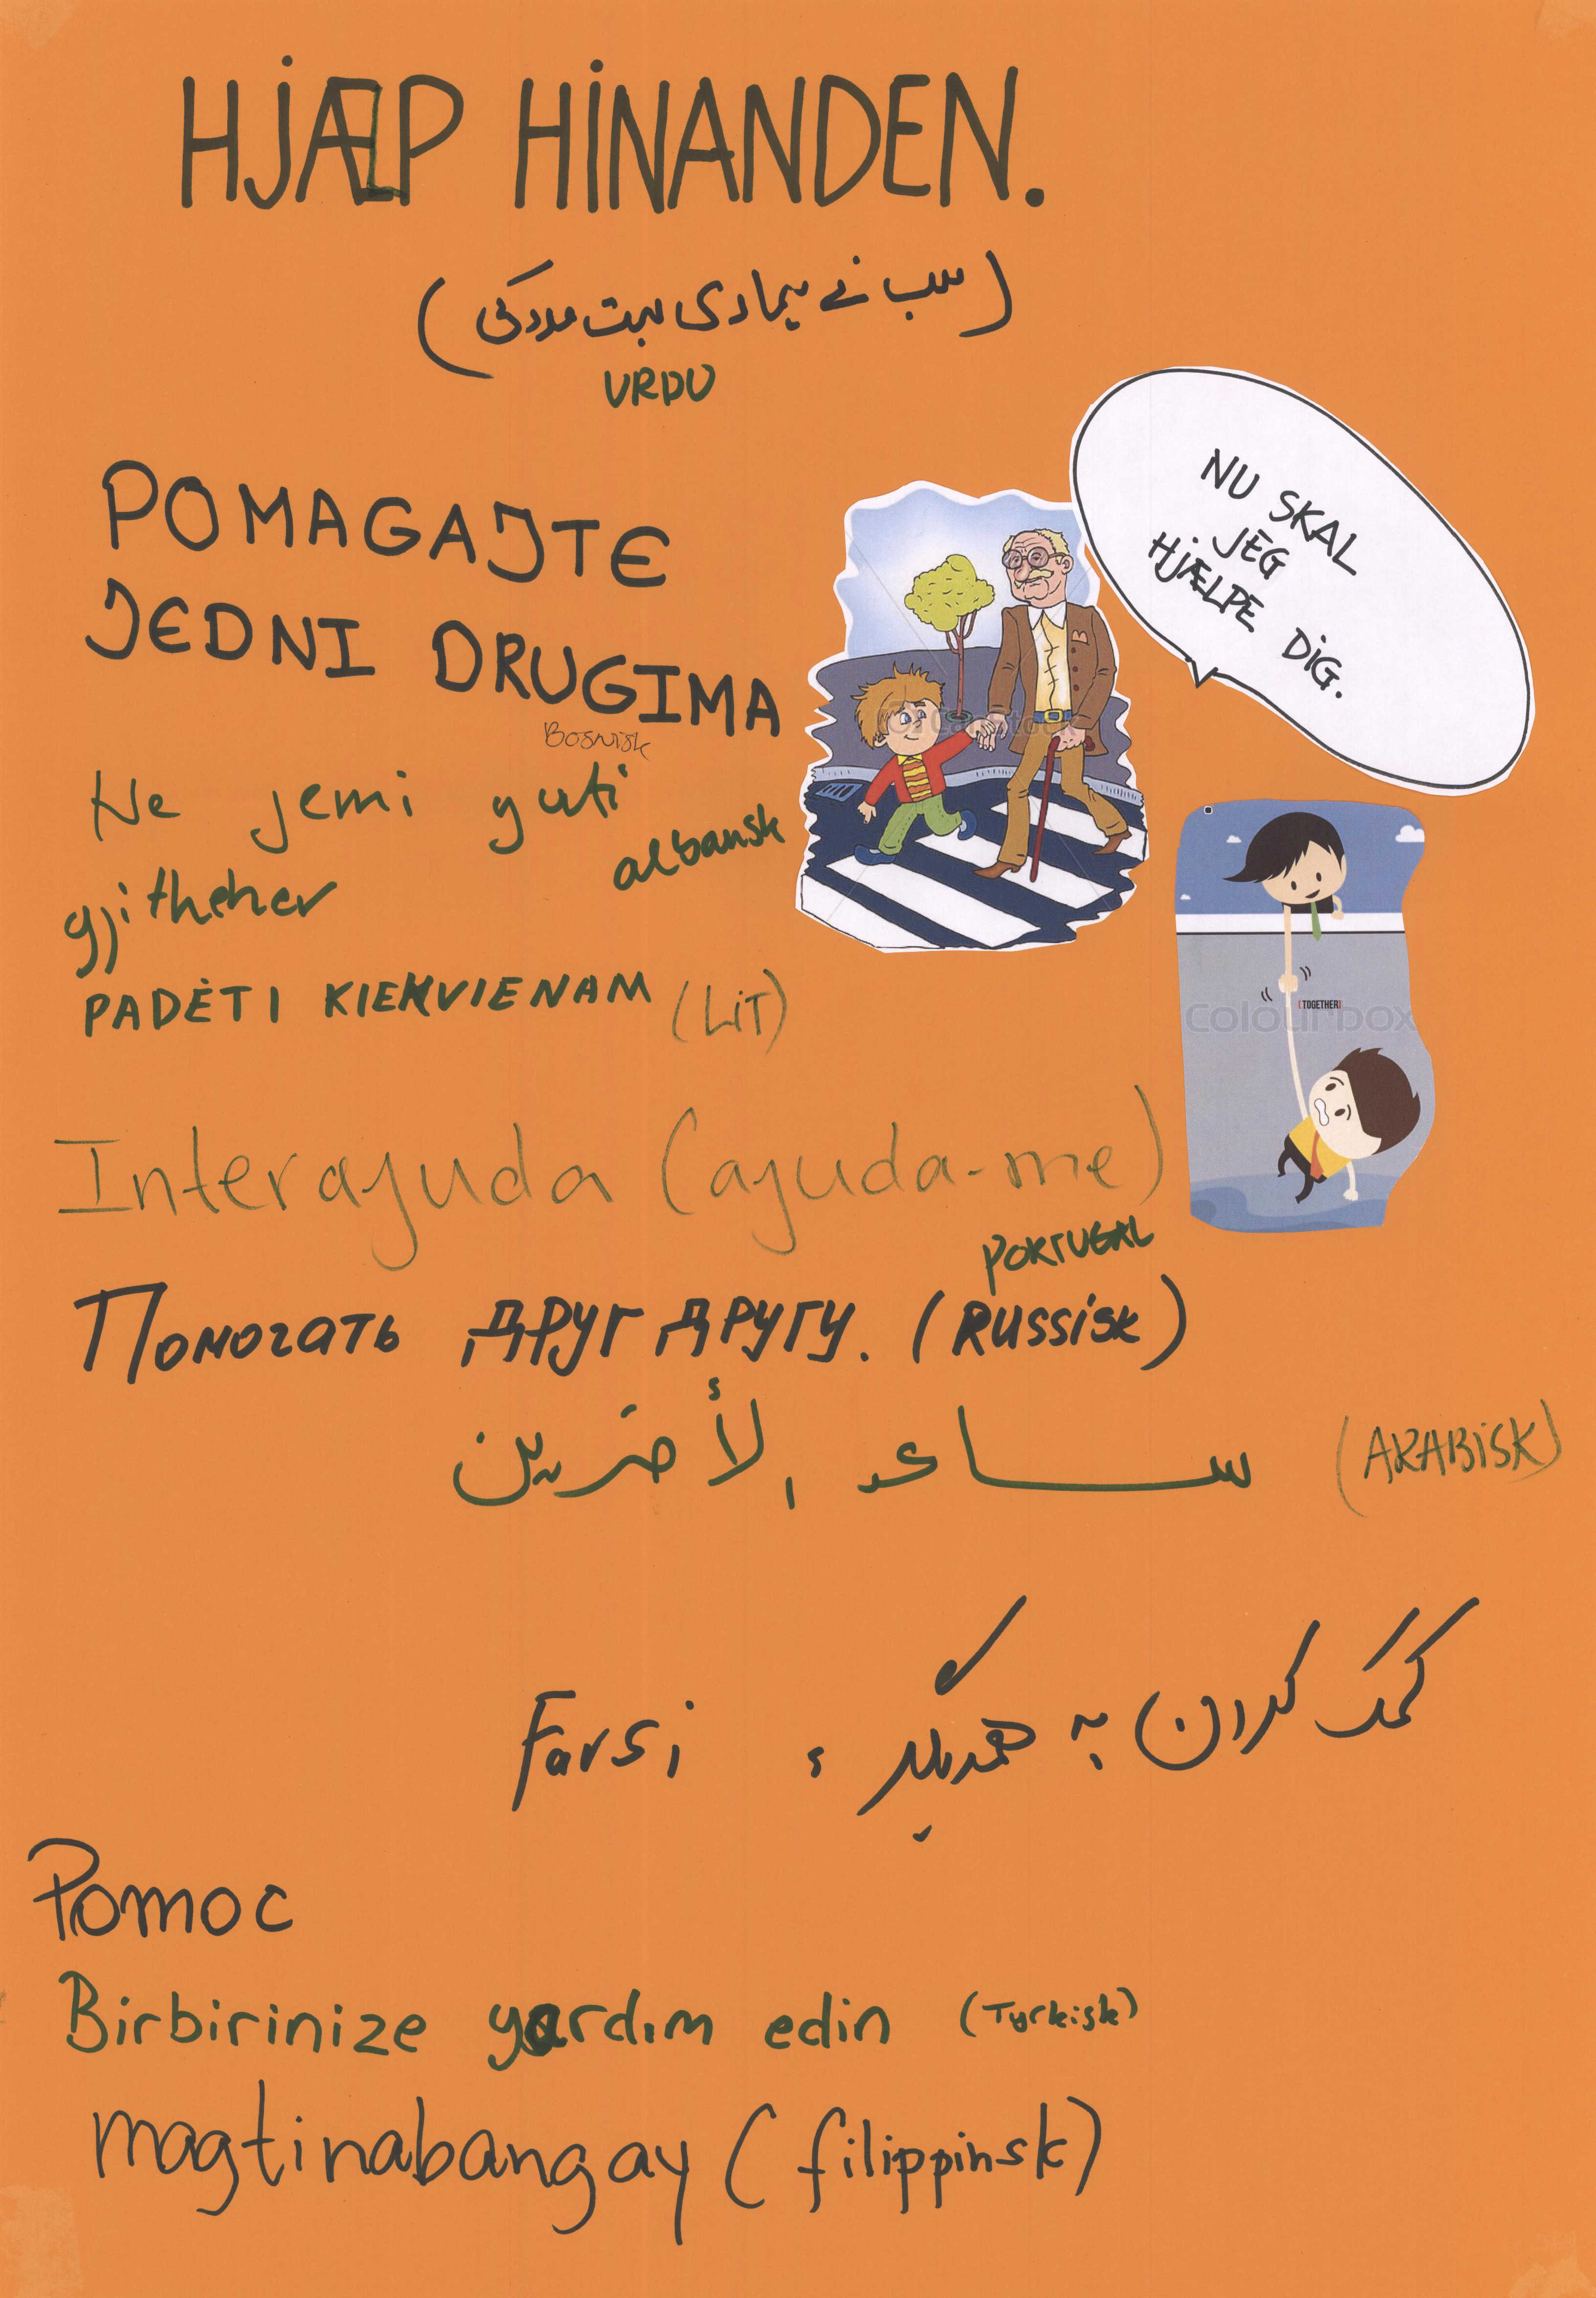 HJÆLP HINANDEN.
(سب نے ہماری بہت مدد کی)
URDU
NU SKAL
JEG
HJÆLPE DIG.
POMAGAJTE
JEDNI DRUGIMA
Bosnisk
Ne jemi guti
albansk
gjitheher
PADĖTI KIEKVIENAM (LIT)
(TOGETHER)
colourbox
Interajuda (ajuda-me)
PORTUGAL
Помогать друг другу. (RUSSISK)
ساعد الأخرين (ARABISK)
کمک کردن به همدیگر، Farsi
Pomoc
Birbirinize yardım edin (Tyrkisk)
magtinabangay (filippinsk)